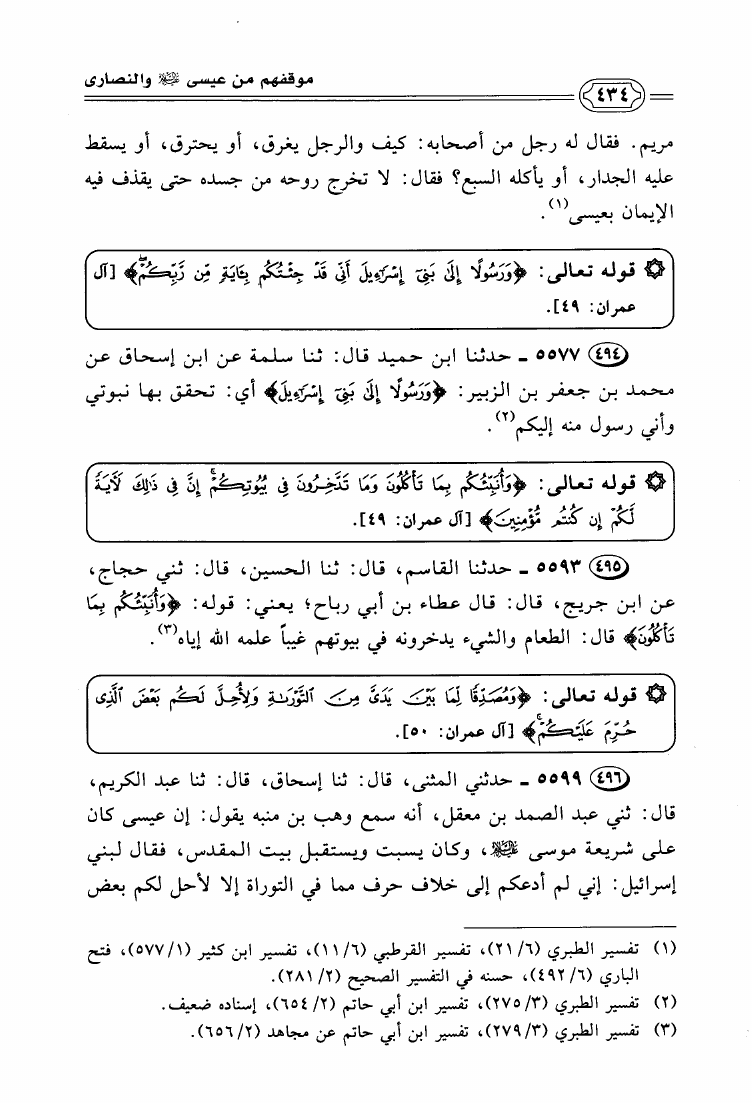 موقفهم من عيسى عليه السلام والنصارى
٤٣٤
مريم. فقال له رجل من أصحابه: كيف والرجل يغرق، أو يحترق، أو يسقط
عليه الجدار، أو يأكله السبع؟ فقال: لا تخرج روحه من جسده حتى يقذف فيه
الإيمان بعيسى(١).
۞ قوله تعالى: ﴿وَرَسُولًا إِلَىٰ بَنِىٓ إِسْرَٰٓءِيلَ أَنِّى قَدْ جِئْتُكُم بِـَٔايَةٍ مِّن رَّبِّكُمْ ۖ﴾ [آل
عمران: ٤٩].
٤٩٤ ٥٥٧٧ ـ حدثنا ابن حميد قال: ثنا سلمة عن ابن إسحاق عن
محمد بن جعفر بن الزبير: ﴿وَرَسُولًا إِلَىٰ بَنِىٓ إِسْرَٰٓءِيلَ﴾ أي: تحقق بها نبوتي
وأني رسول منه إليكم(٢).
۞ قوله تعالى: ﴿وَأُنَبِّئُكُم بِمَا تَأْكُلُونَ وَمَا تَدَّخِرُونَ فِى بُيُوتِكُمْ ۚ إِنَّ فِى ذَٰلِكَ لَـَٔايَةً
لَّكُمْ إِن كُنتُم مُّؤْمِنِينَ﴾ [آل عمران: ٤٩].
٤٩٥ ٥٥٩٣ ـ حدثنا القاسم، قال: ثنا الحسين، قال: ثني حجاج،
عن ابن جريج، قال: قال عطاء بن أبي رباح؛ يعني: قوله: ﴿وَأُنَبِّئُكُم بِمَا
تَأْكُلُونَ﴾ قال: الطعام والشيء يدخرونه في بيوتهم غيباً علمه الله إياه(٣).
۞ قوله تعالى: ﴿وَمُصَدِّقًا لِّمَا بَيْنَ يَدَىَّ مِنَ التَّوْرَىٰةِ وَلِأُحِلَّ لَكُم بَعْضَ ٱلَّذِى
حُرِّمَ عَلَيْكُمْ ۚ﴾ [آل عمران: ٥٠].
٤٩٦ ٥٥٩٩ ـ حدثني المثنى، قال: ثنا إسحاق، قال: ثنا عبد الكريم،
قال: ثني عبد الصمد بن معقل، أنه سمع وهب بن منبه يقول: إن عيسى كان
على شريعة موسى عليه السلام، وكان يسبت ويستقبل بيت المقدس، فقال لبني
إسرائيل: إني لم أدعكم إلى خلاف حرف مما في التوراة إلا لأحل لكم بعض
(١) تفسير الطبري (٢١/٦)، تفسير القرطبي (١١/٦)، تفسير ابن كثير (٥٧٧/١)، فتح
الباري (٤٩٢/٦)، حسنه في التفسير الصحيح (٢٨١/٢).
(٢) تفسير الطبري (٢٧٥/٣)، تفسير ابن أبي حاتم (٦٥٤/٢)، إسناده ضعيف.
(٣) تفسير الطبري (٢٧٩/٣)، تفسير ابن أبي حاتم عن مجاهد (٦٥٦/٢).